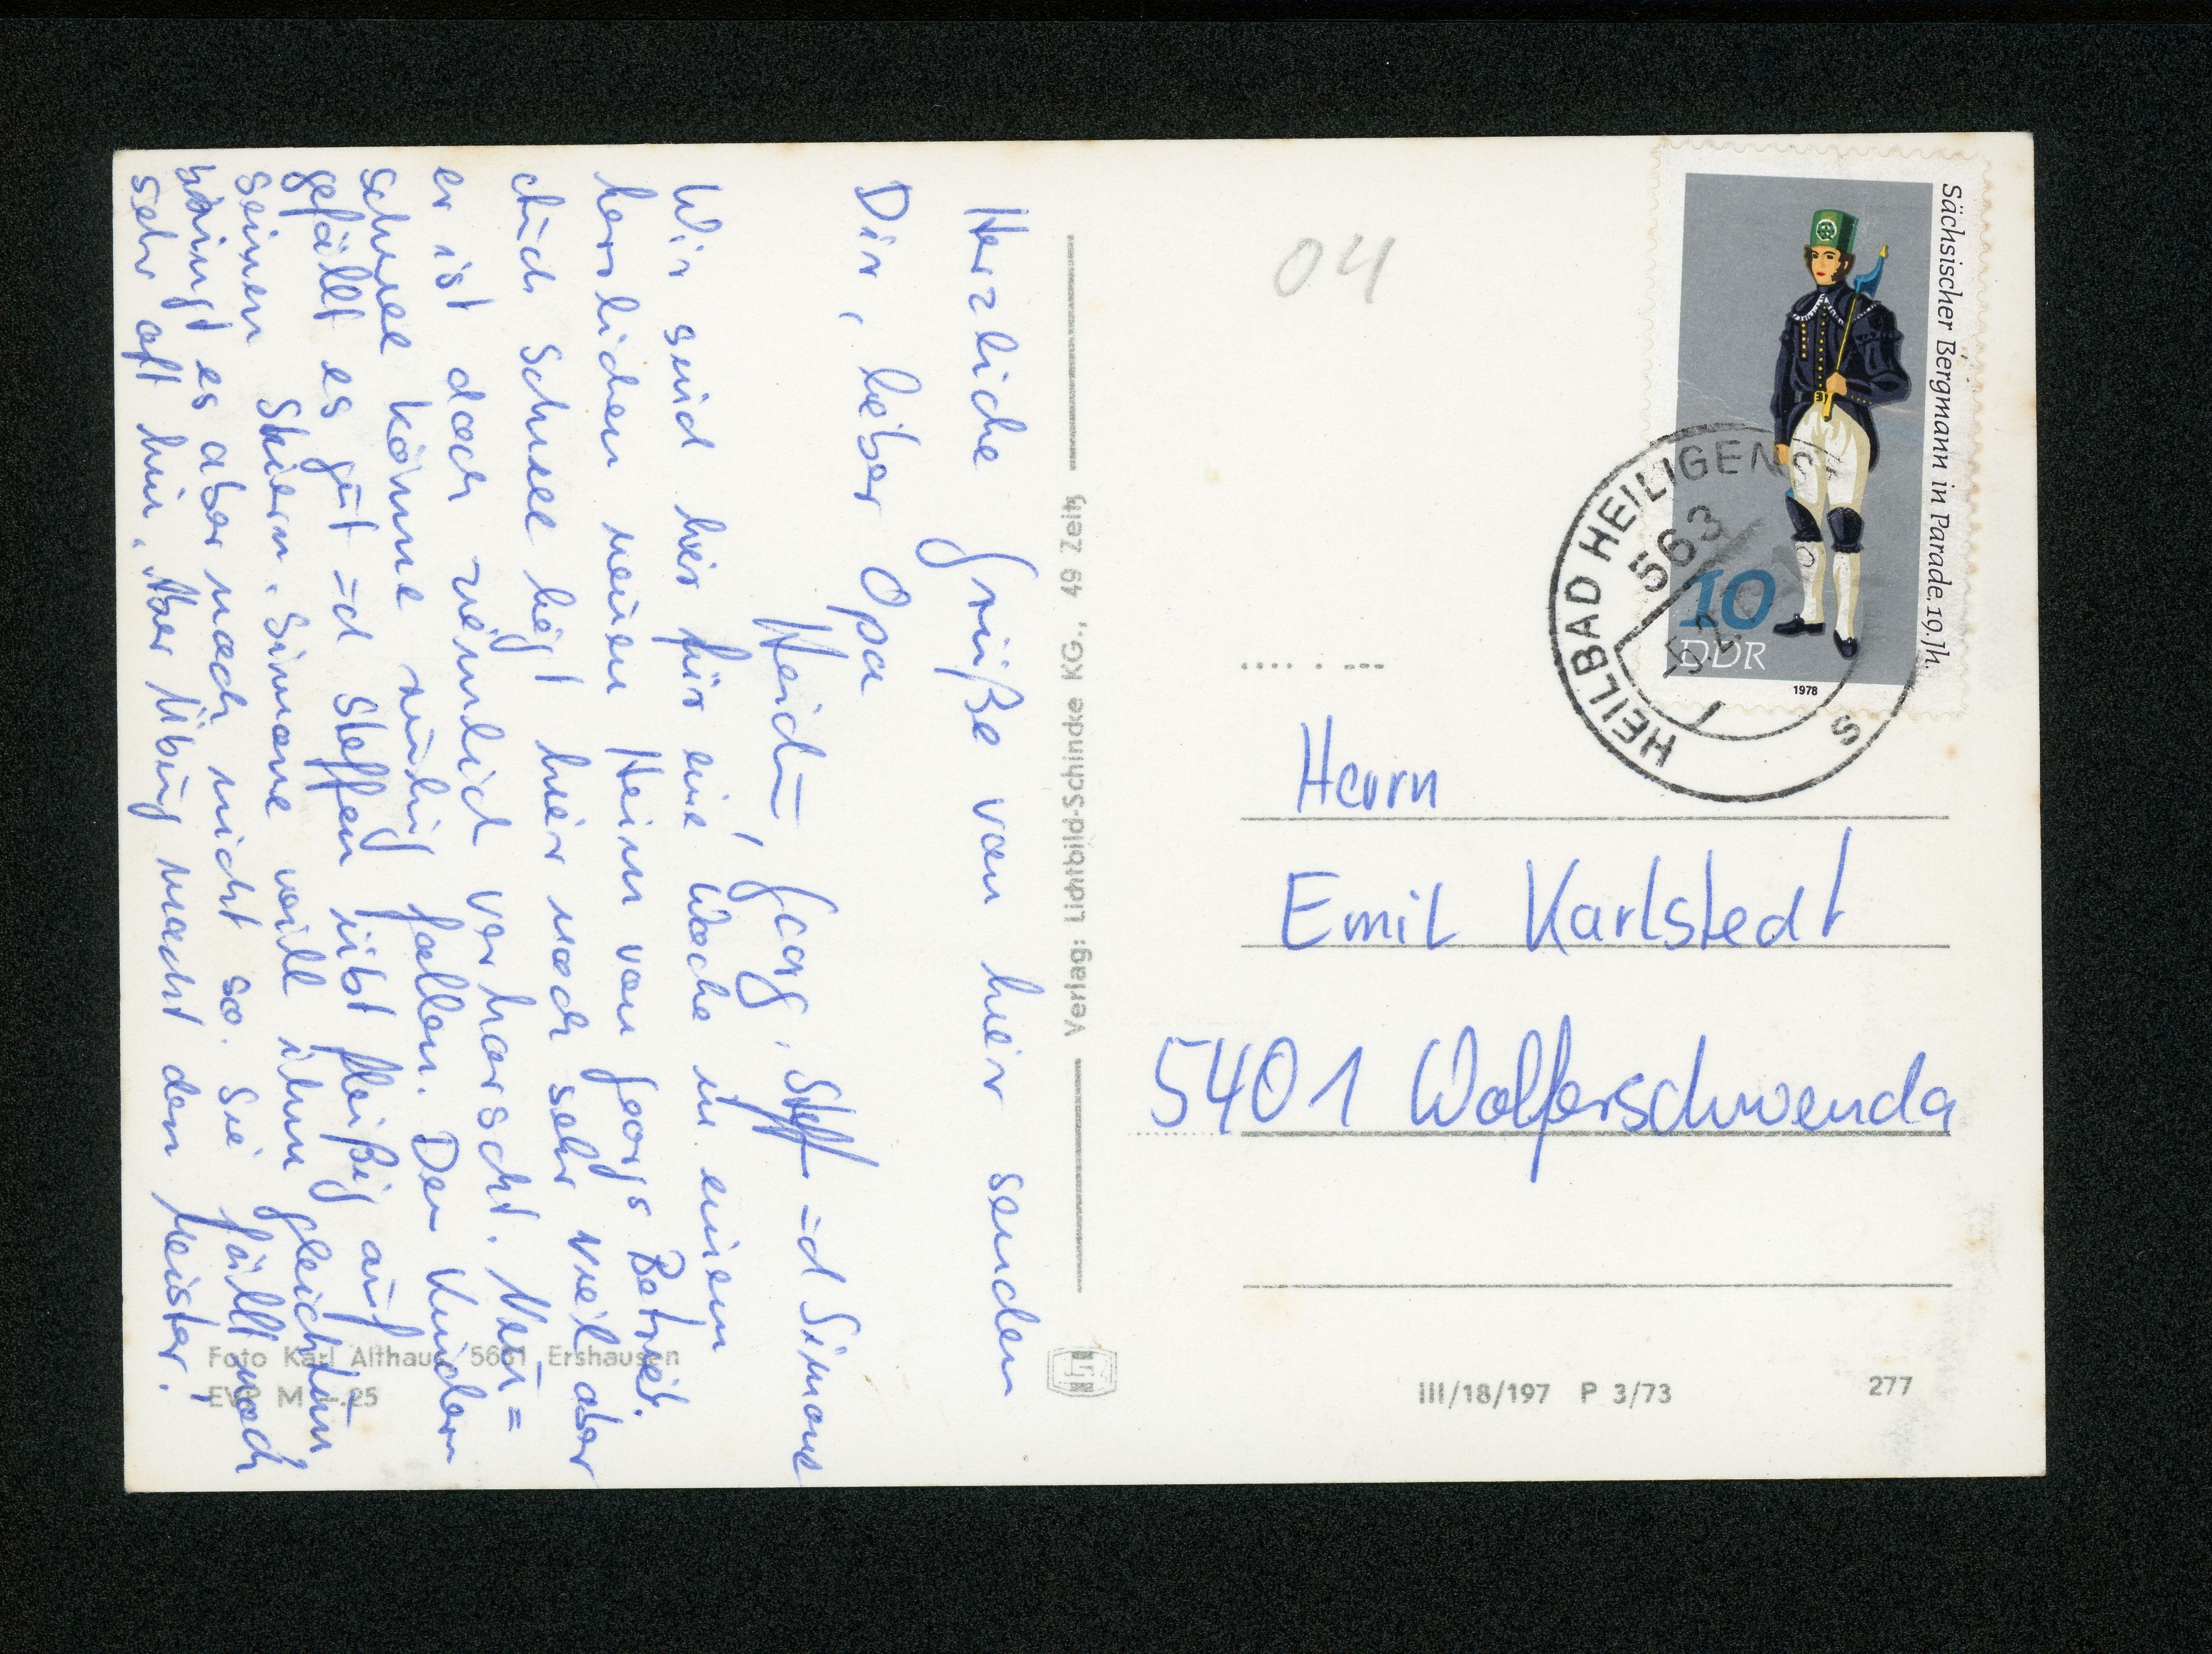 Herzliche Grüße von hier senden
Dir, lieber Opa
Heidi, Georg, Steff u-d Simone
Wir sind hier für eine Woche in einem
herrlichen neuen Heim von Georgs Betrieb.
Auch Schnee liegt hier noch sehr viel aber
er ist doch ziemlich verharscht. Neu=
schnee könnte ruhig fallen. Den Kindern
gefällt es gut u-d Steffen übt fleißig auf
seinen Skiern. Simone will ihm gleichtun
bringt es aber noch nicht so. Sie fällt noch
sehr oft hin. Aber Übung macht den Meister!
Verlag: Lichtbild-Schincke KG., 49 Zeitz
Foto Karl Althaus, 5631 Ershausen
EVP M -.25
04
Sächsischer Bergmann in Parade. 19. Jh.
10
DDR
1978
HEILBAD HEILIGENS
563
Herrn
Emil Karlstedt
5401 Wolferschwenda
III/18/197 P 3/73
277